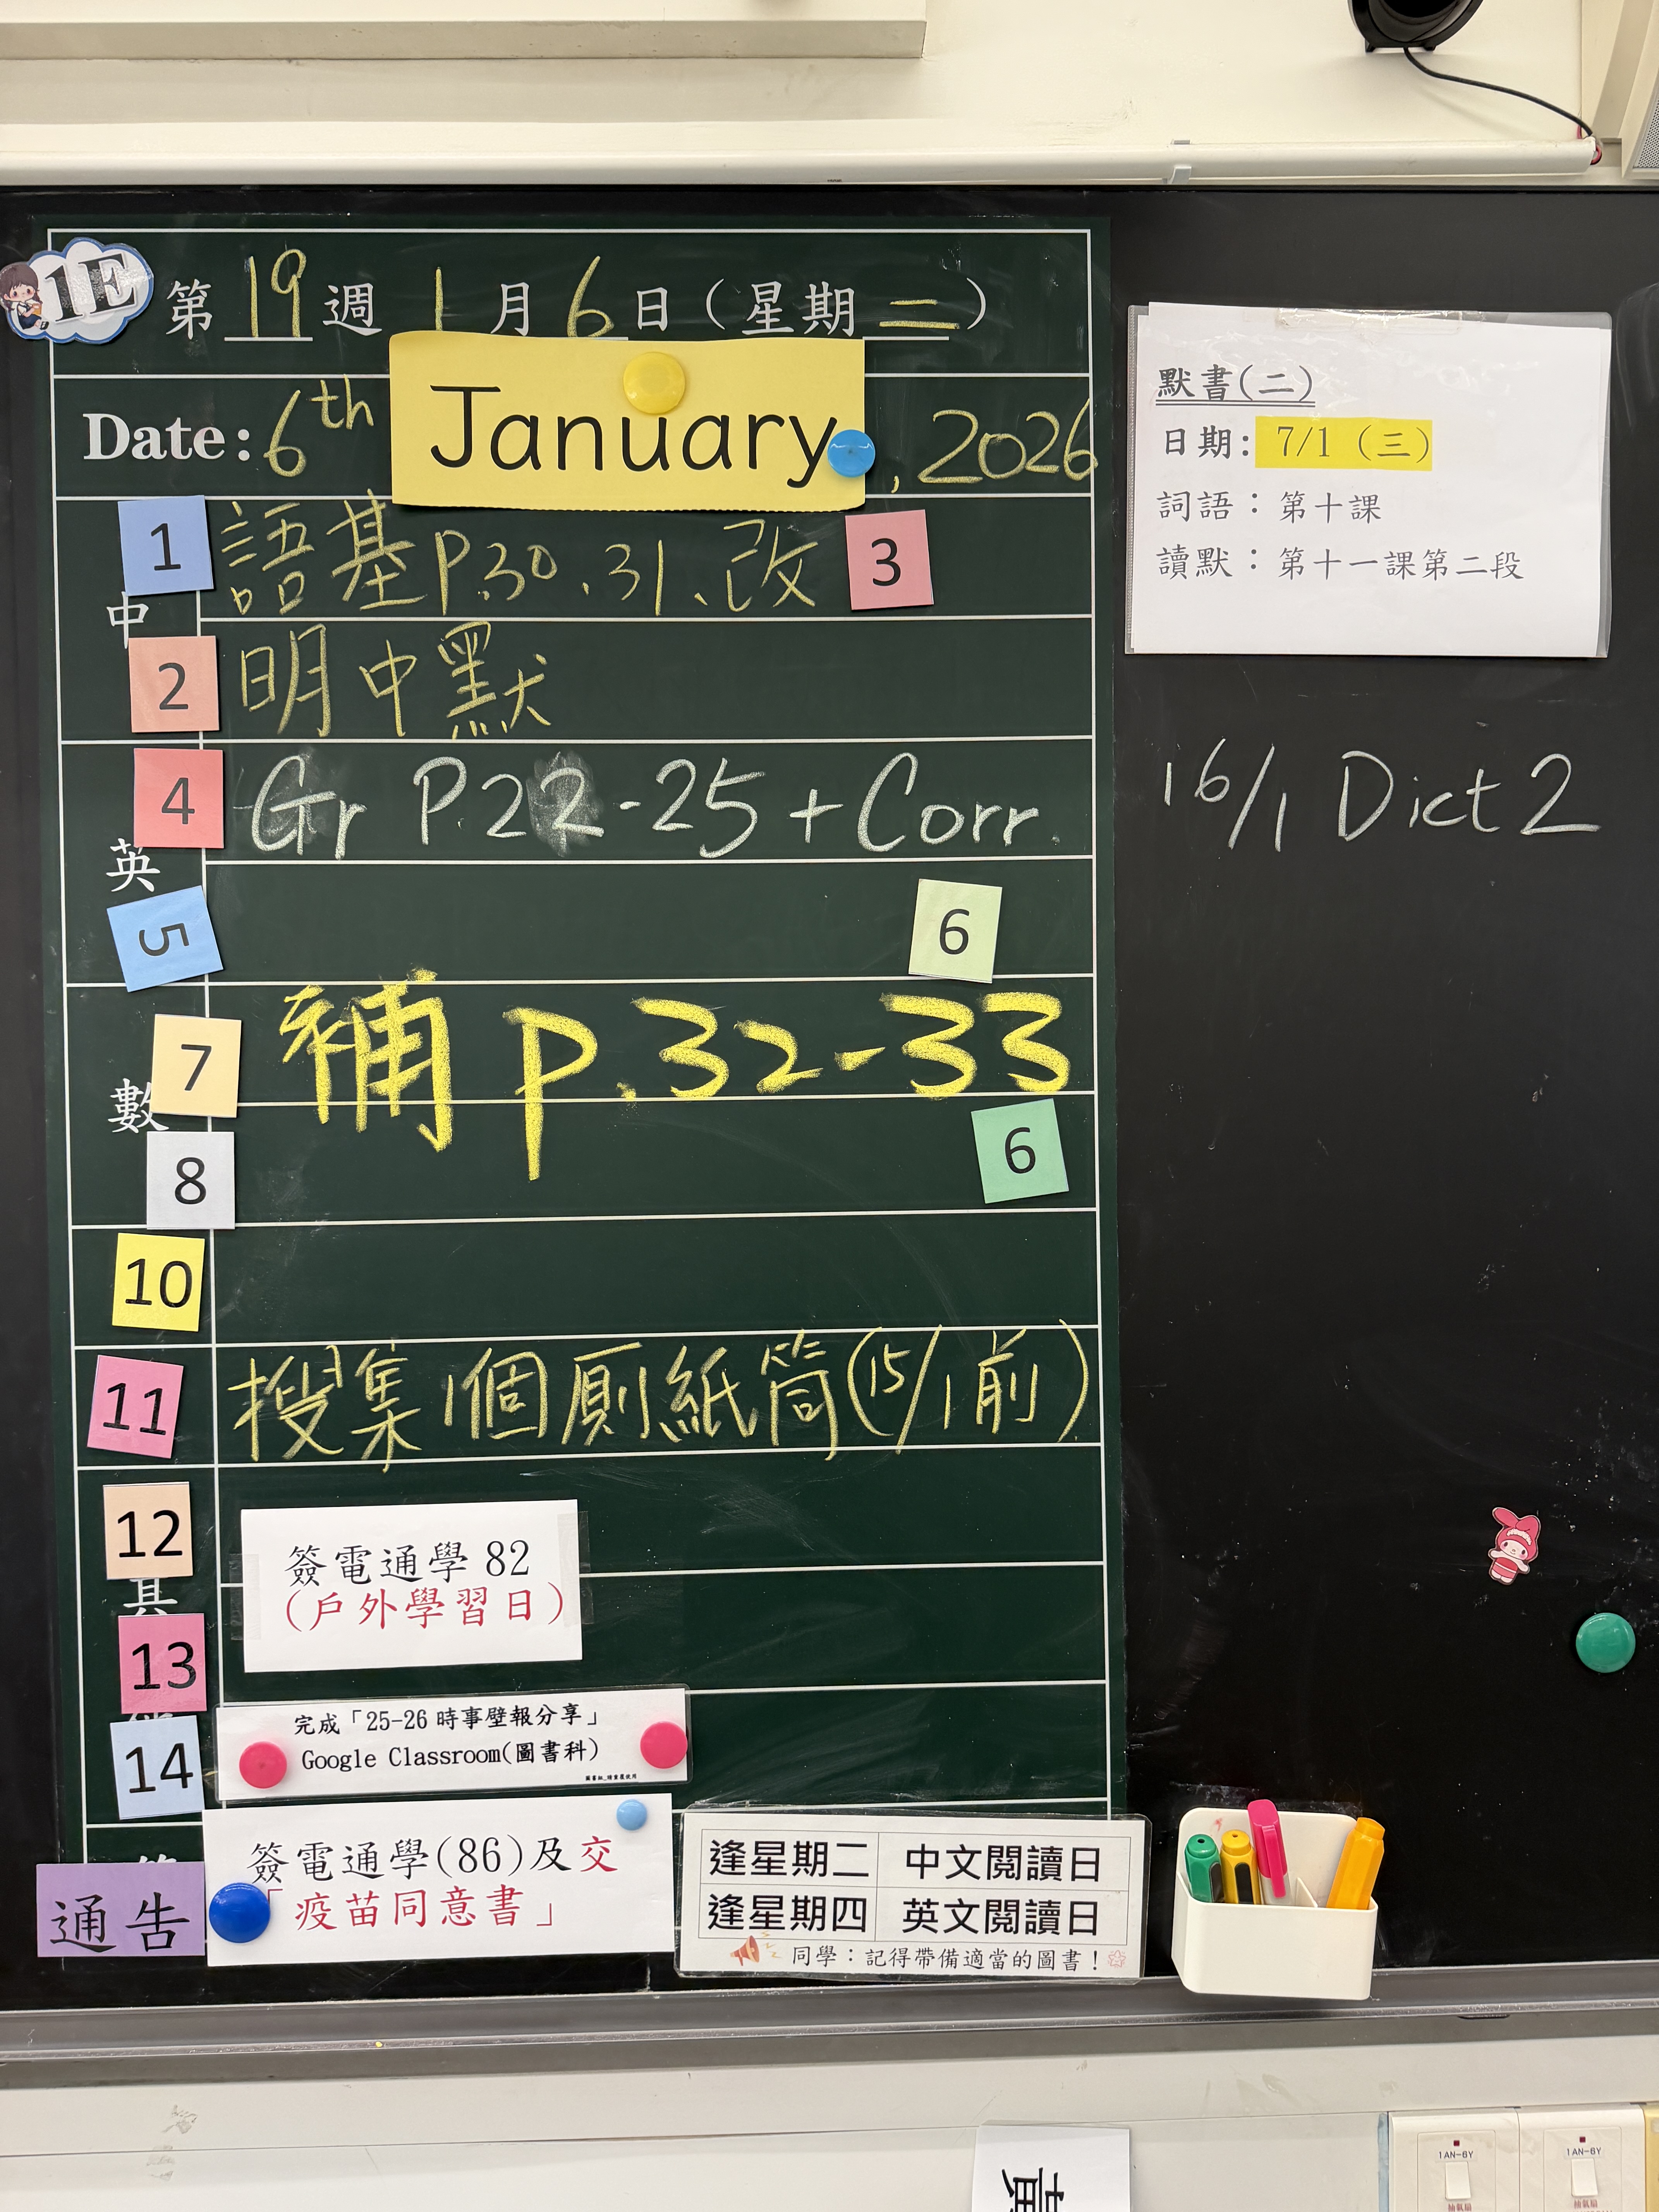 1E
第19週 1月6日(星期二)
Date: 6th January, 2026
中
1 語基P.30.31、改 3
2 明中默
英
4 Gr P.22-25+Corr.
5 6
數
7 補 p.32-33
8 6
10
11 搜集1個厠紙筒(15/1前)
12
其
簽電通學 82
(戶外學習日)
13
14
完成「25-26 時事壁報分享」
Google Classroom(圖書科)
通告
簽電通學(86)及交
「疫苗同意書」
逢星期二 中文閱讀日
逢星期四 英文閱讀日
同學:記得帶備適當的圖書!
默書(二)
日期: 7/1 (三)
詞語:第十課
讀默:第十一課第二段
16/1 Dict 2
1AN-6Y
1AN-6Y
抽氣扇